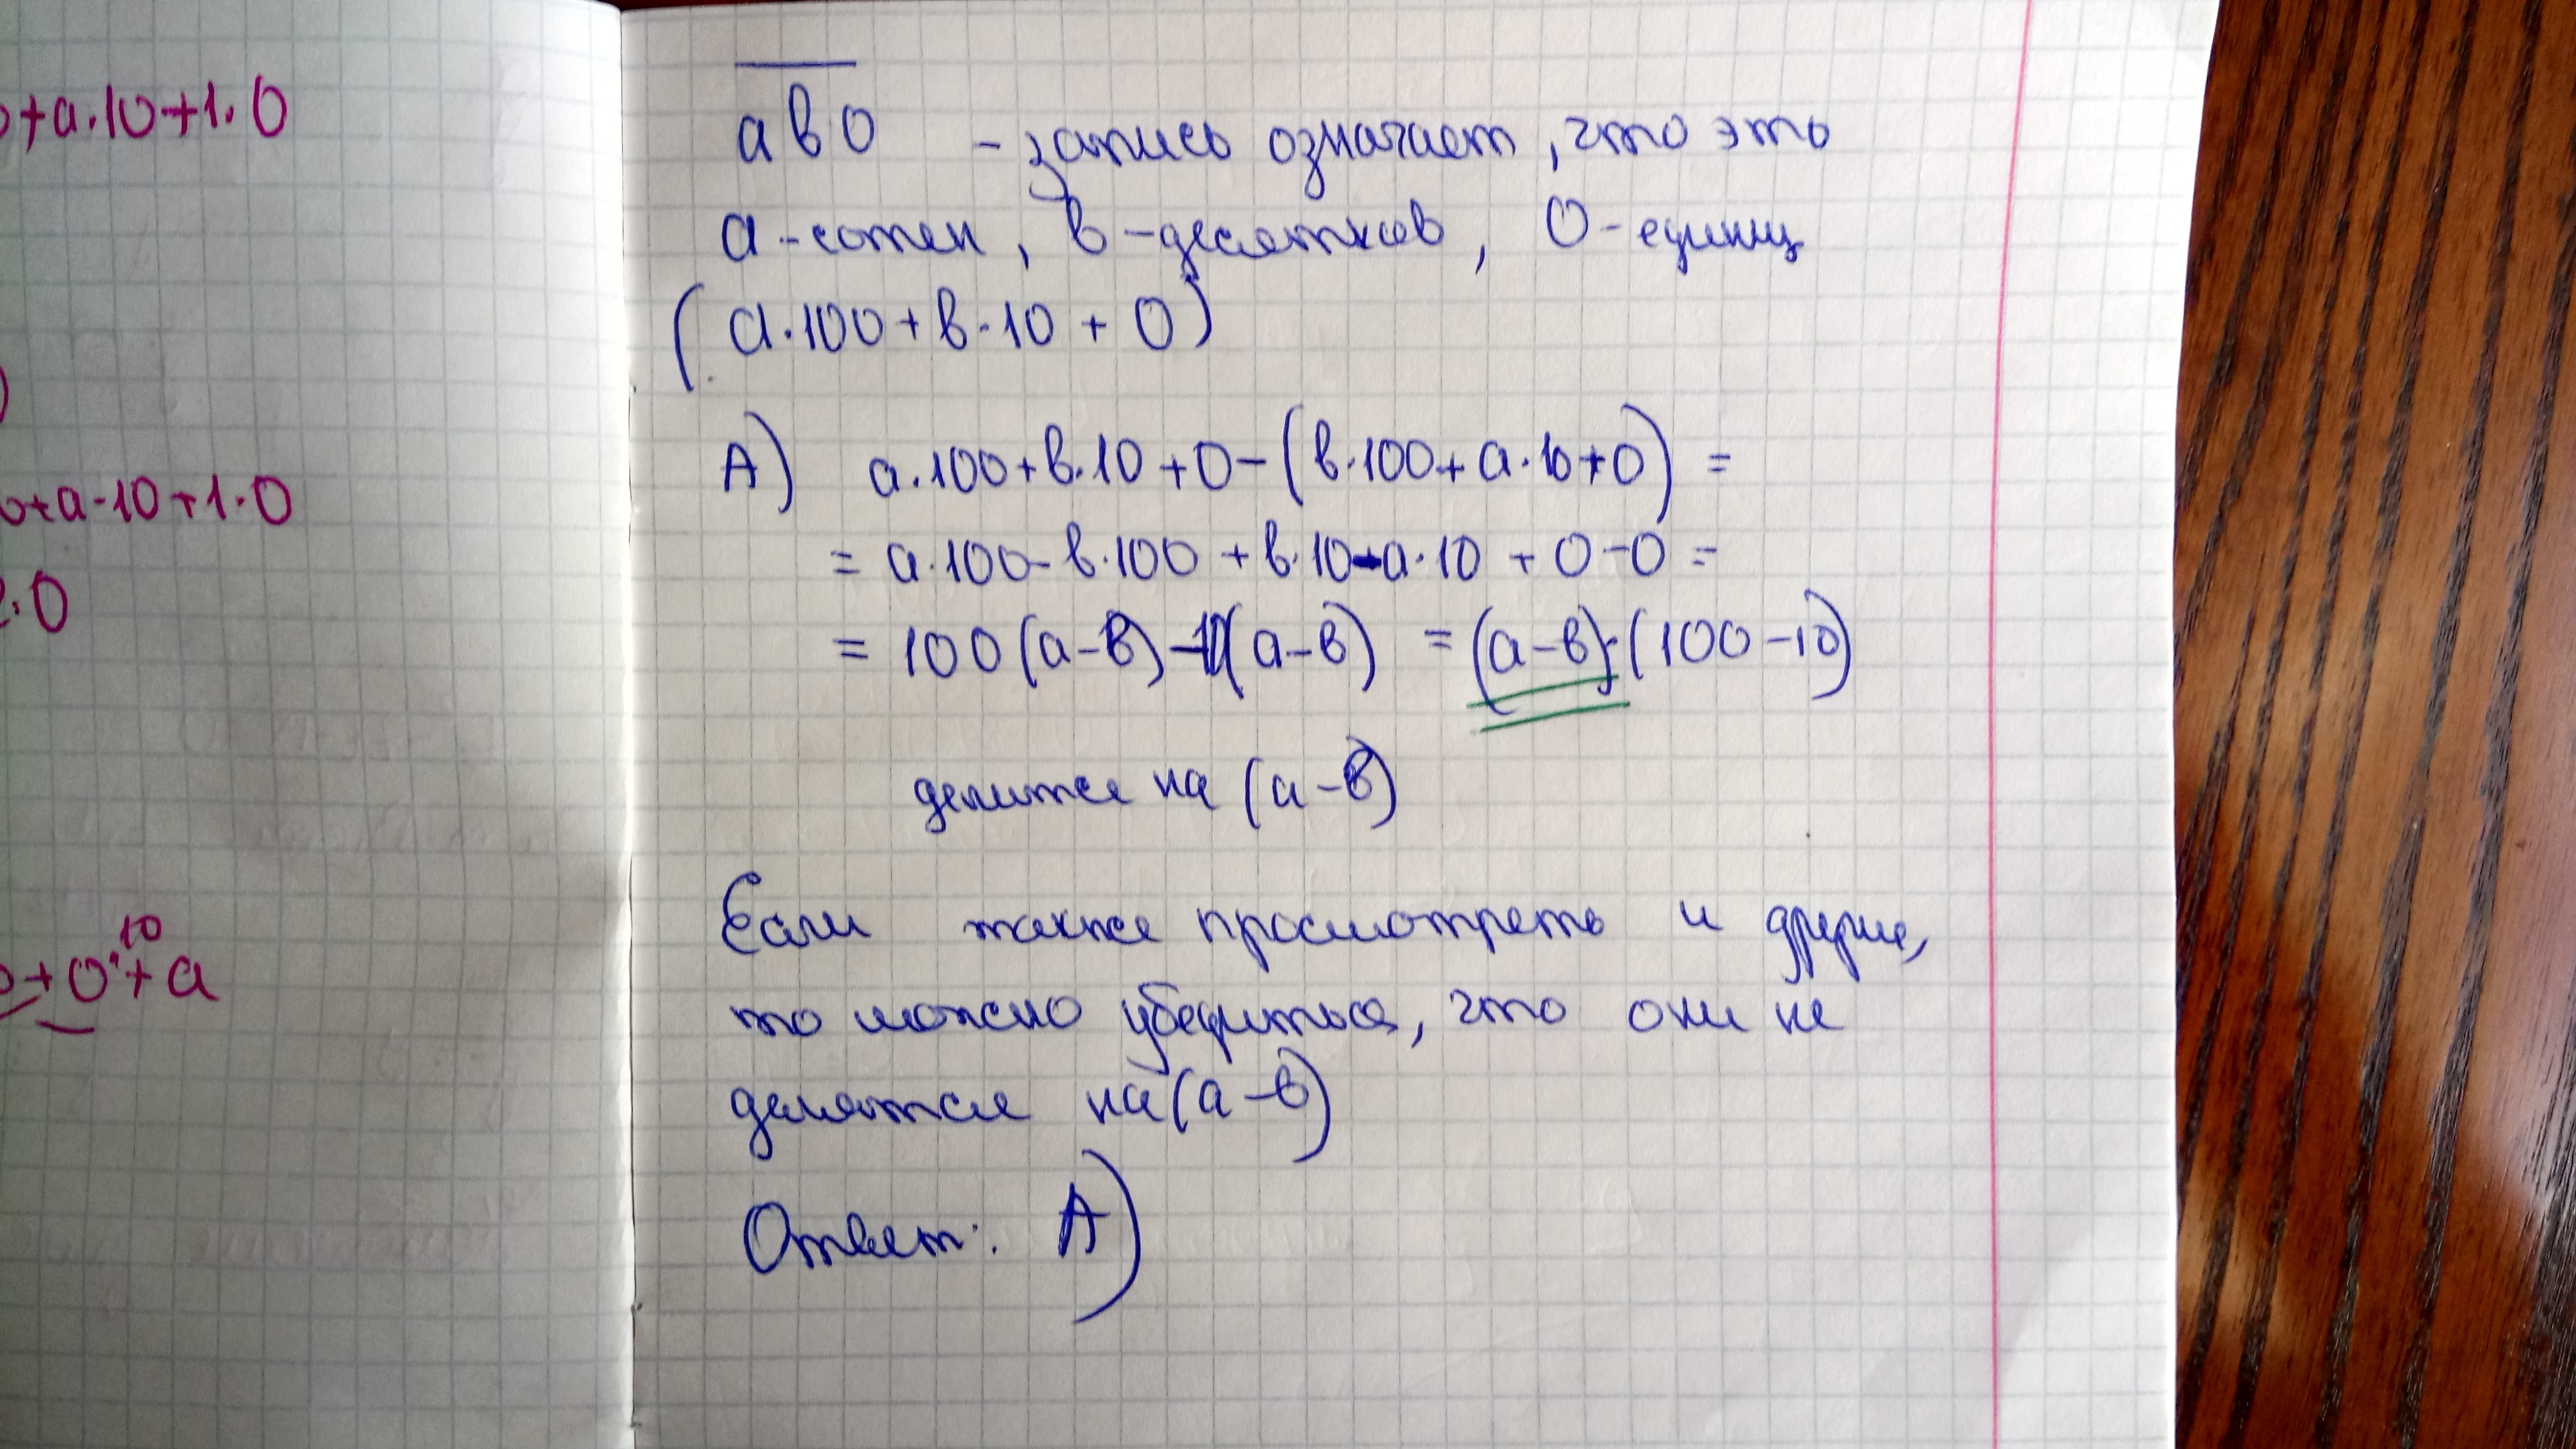 +а·10+1·0
+а·10+1·0
·0
10
+0·+а
ав0 - запись означает, что это
а-сотен, в-десятков, 0-единиц
(а·100+в·10+0)
А) а·100+в·10+0-(в·100+а·10+0) =
= а·100-в·100+в·10-а·10+0-0=
= 100(а-в)-10(а-в) = (а-в)·(100-10)
делится на (а-в)
Если также просмотреть и другие,
то можно убедиться, что они не
делятся на (а-в)
Ответ: А)